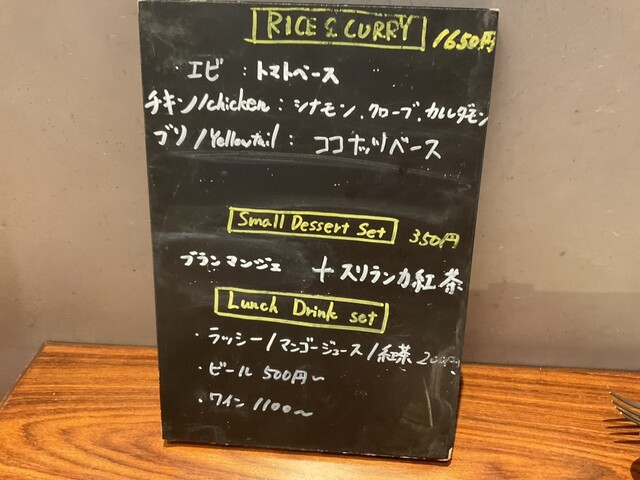 RICE & CURRY 1650円
・エビ：トマトベース
チキン/chicken：シナモン、クローブ、カルダモン
ブリ/Yellowtail：ココナッツベース
Small Dessert Set 350円
ブランマンジェ ＋スリランカ紅茶
Lunch Drink set
・ラッシー/マンゴージュース/紅茶 200円
・ビール 500円〜
・ワイン 1100〜